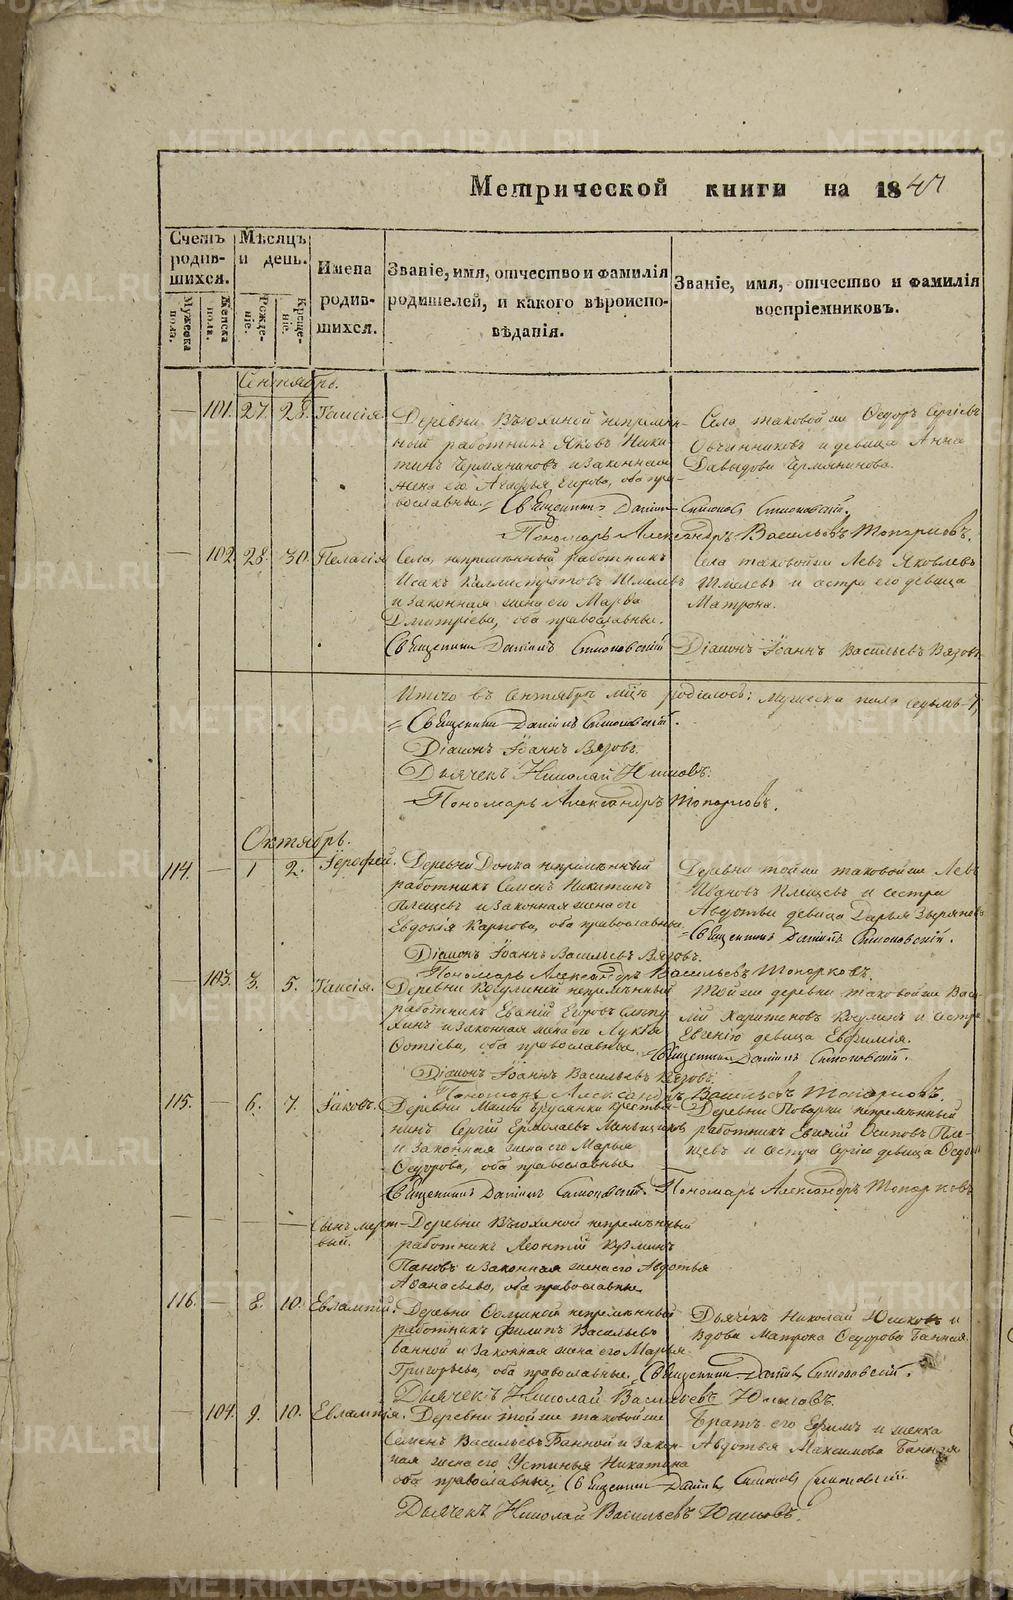 Метрической книги на 1847
Счетъ родившихся.
Мѣсяцъ и день.
Имена родившихся.
Званіе, имя, отчество и фамилія родителей, и какого вѣроисповѣданія.
Званіе, имя, отчество и фамилія воспріемниковъ.
Мужеска пола.
Женска пола.
Рожденіе.
Крещеніе.
Сентябрь.
— 101. 27. 28. Таисія
Деревни Вьюхиной непремѣн-
ный работникъ Яковъ Ники-
тинъ Чермяниновъ и законная
жена его Агафья Егорова, оба пра-
вославные.
Села таковой же Ѳедоръ Сергіевъ
Овчинниковъ и девица Анна
Давыдова Чермянинова.
Священникъ Даніилъ Симоновскій.
Пономарь Александръ Васильевъ Топорковъ.
— 102. 28. 30. Пелагія
Села, непремѣнный работникъ
Исакъ Каллистратовъ Шмелевъ
и законная жена его Марѳа
Дмитріева, оба православные.
Села таковой же Левъ Яковлевъ
Шмелевъ и сестра его девица
Матрона.
Священникъ Даніилъ Симоновскій Діаконъ Іоаннъ Васильевъ Вязовъ
Итого въ Сентябрѣ мцѣ родилось: Мужеска пола седьмь 7,
Священникъ Даніилъ Симоновскій.
Діаконъ Іоаннъ Вязовъ.
Дьячекъ Николай
Пономарь Александръ Топорковъ.
Октябрь.
114. — 1 2. Іерофей.
Деревни непремѣнный
работникъ Семенъ Никитинъ
Плещевъ и законная жена его
Евдокія Карпова, оба православные.
Деревни той же таковой же Левъ
Ивановъ Плещевъ и сестра
Авдотьи девица Дарья
Священникъ Даніилъ Симоновскій.
Діаконъ Іоаннъ Васильевъ Вязовъ.
Пономарь Александръ Васильевъ Топорковъ.
— 103. 3. 5. Таисія.
Деревни непремѣнный
работникъ Евгеній Егоровъ
и законная жена его Лукія
Фотіева, оба православные
Той же деревни таковой же Васи-
лій Харитоновъ и сестра
Евгенію девица Евфимія.
Священникъ Даніилъ Симоновскій.
Діаконъ Іоаннъ Васильевъ Вязовъ.
Пономарь Александръ Васильевъ Топорковъ.
115. — 6. 7. Іаковъ.
Деревни Малой Брусянки крестья-
нинъ Сергій Ермолаевъ Меньщиковъ
и законная жена его Марья
Ѳедорова, оба православные
Деревни Поварни непремѣнный
работникъ Евгеній Осиповъ Пле-
щевъ и сестра Сергію девица
Священникъ Даніилъ Симоновскій. Пономарь Александръ Топорковъ
— — — — Сынъ мерт-
вый.
Деревни Вьюхиной непремѣнный
работникъ Леонтій Кузминъ
Пановъ и законная жена его Авдотья
Аѳанасьева, оба православные
116. — 8. 10. Евлампій.
Деревни непремѣнный
работникъ Филипъ Васильевъ
Банной и законная жена его Марья
Григорьева, оба православные.
Дьячекъ Николай и
вдова Матрона Ѳедорова Банная.
Священникъ Даніилъ Симоновскій.
Дьячекъ Николай Васильевъ
— 104. 9. 10. Евлампія.
Деревни той же таковой же
Семенъ Васильевъ Банной и закон-
ная жена его Устинья Никитина
оба православные.
Братъ его Ефимъ и женка
Авдотья Максимова Банная
Священникъ Даніилъ Симоновскій
Дьячекъ Николай Васильевъ
METRIKI.GASO-URAL.RU